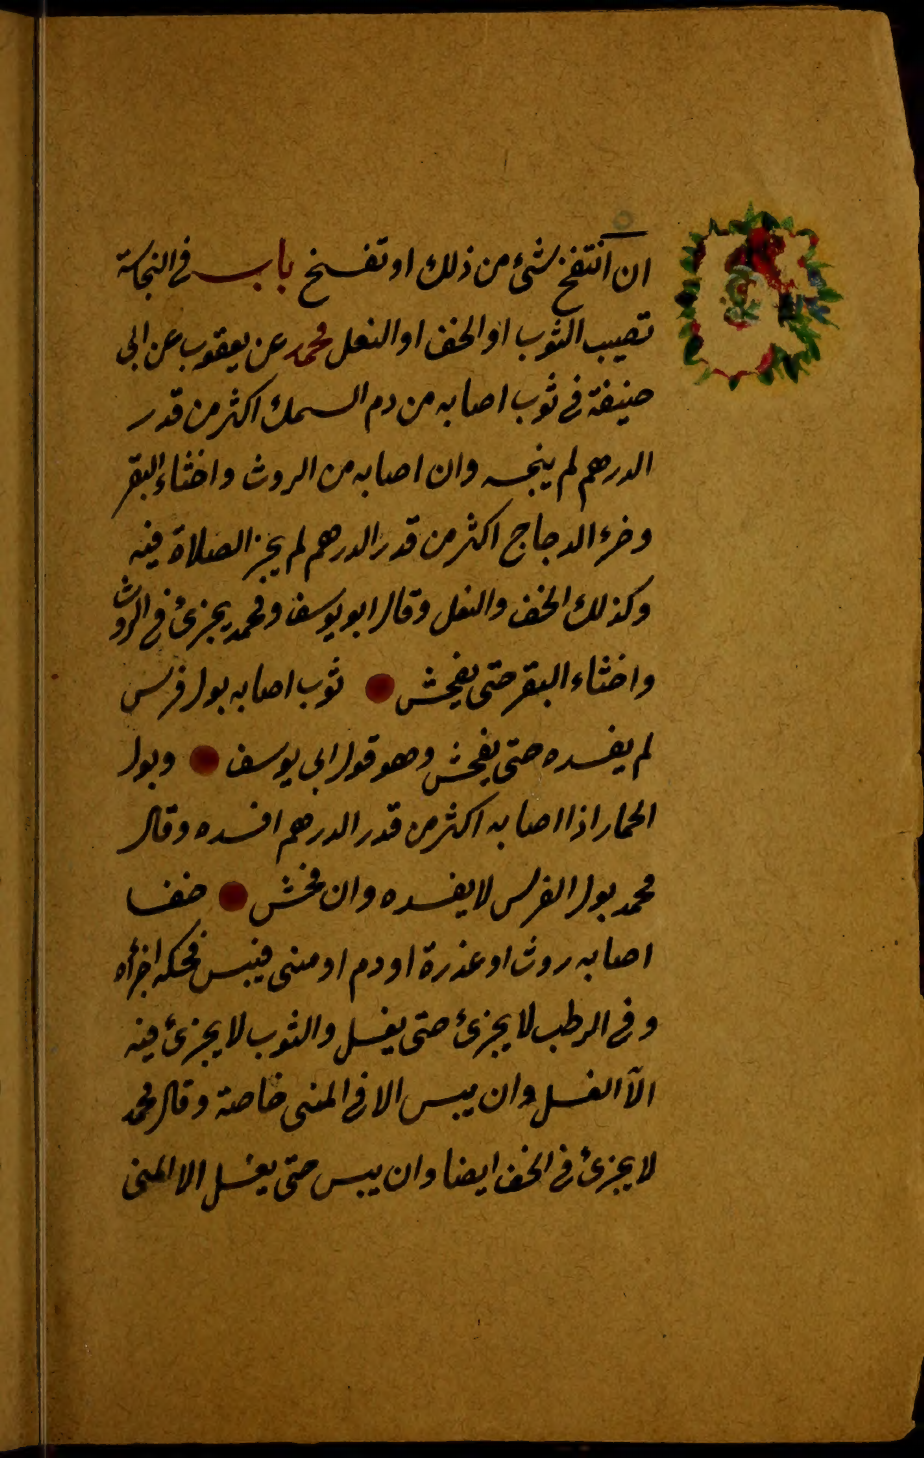 ان انتفخ شئ من ذلك او تفسخ باب فى النجاسة
تصيب الثوب او الخف او النعل محمد عن يعقوب عن ابى
حنيفة فى ثوب اصابه من دم السمك اكثر من قدر
الدرهم لم ينجسه وان اصابه من الروث واخثاء البقر
وخرء الدجاج اكثر من قدر الدرهم لم يجز الصلاة فيه
وكذلك الخف والنعل وقال ابو يوسف ومحمد يجزئ فى الروث
واخثاء البقر حتى يفحش ثوب اصابه بول فرس
لم يفسده حتى يفحش وهو قول ابى يوسف وبول
الحمار اذا اصابه اكثر من قدر الدرهم افسده وقال
محمد بول الفرس لا يفسده وان فحش خف
اصابه روث او عذرة او دم او منى فيبس فحكه اجزأه
وفى الرطب لا يجزئ حتى يغسل والثوب لا يجزئ فيه
الا الغسل وان يبس الا فى المنى خاصة وقال محمد
لا يجزئ فى الخف ايضا وان يبس حتى يغسل الا المنى